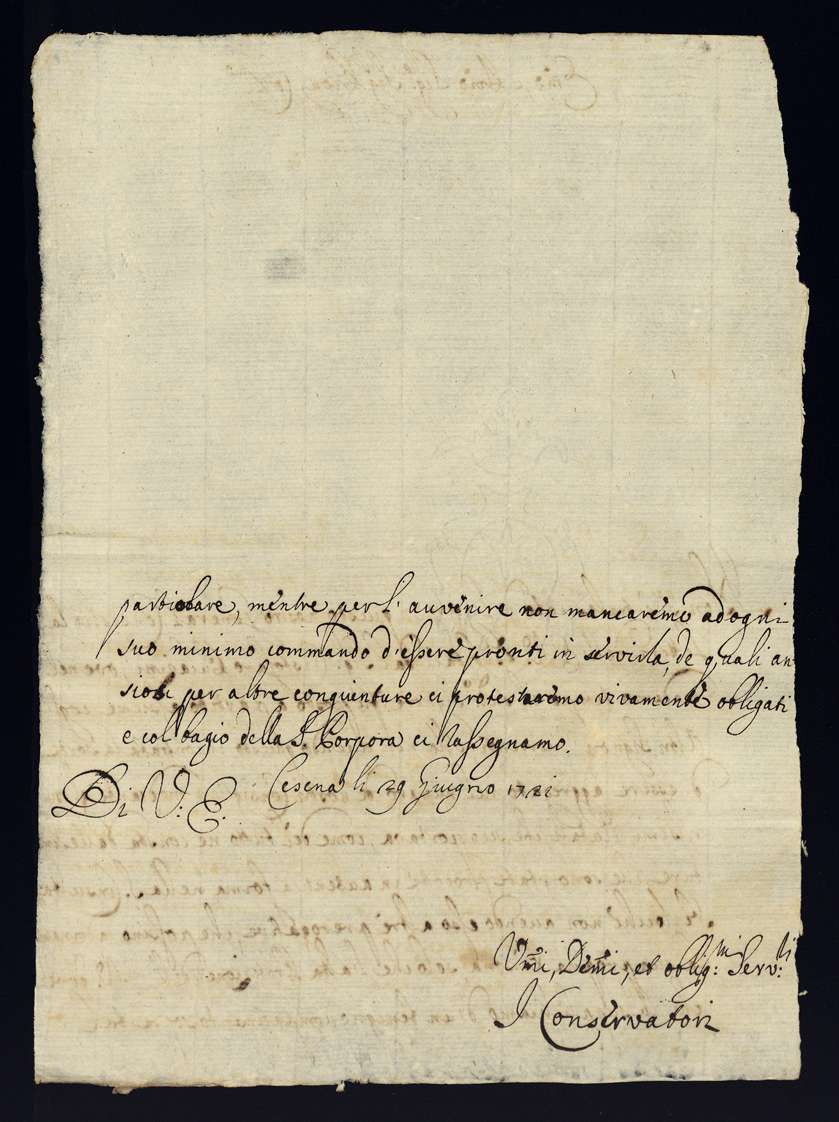 particolare, mentre per l' auvenire non mancaremo ad ogni
suo minimo commando d'essere pronti in servirla, de quali an
siosi per altre congiunture ci protestaremo vivamente obligati
e col bagio della S. Porpora ci rassegnamo.
Di V. E. Cesena li 29 Giugno 1721
Vmi, Demi, et oblig:mi Serv:li
I Conservatori